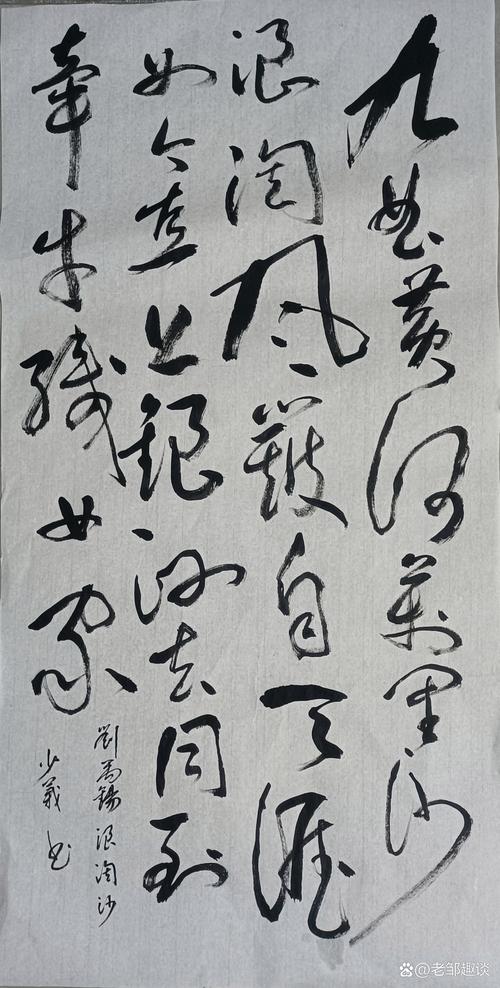 九曲黄河萬里沙
浪淘風簸自天涯
如今直上銀河去同到
牽牛織女家
劉禹錫浪淘沙
少義书
@老邹趣谈